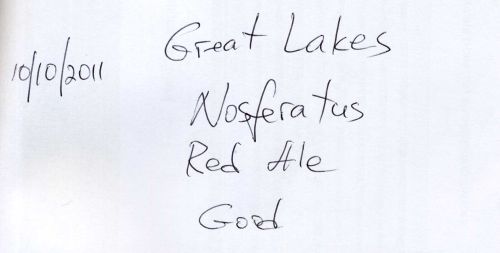 10/10/2011
Great Lakes
Nosferatus
Red Ale
Good